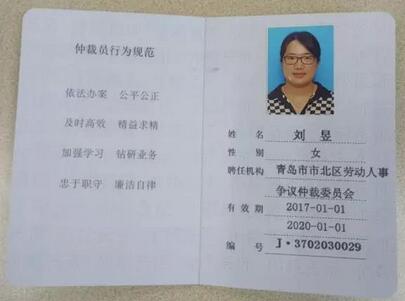 仲裁员行为规范
依法办案 公平公正
及时高效 精益求精
加强学习 钻研业务
忠于职守 廉洁自律
姓名 刘昱
性别 女
聘任机构 青岛市市北区劳动人事
争议仲裁委员会
有效期 2017-01-01
2020-01-01
编号 J·3702030029